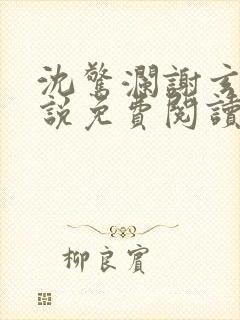 沈驚瀾謝玄
說免費閱讀
柳良賓